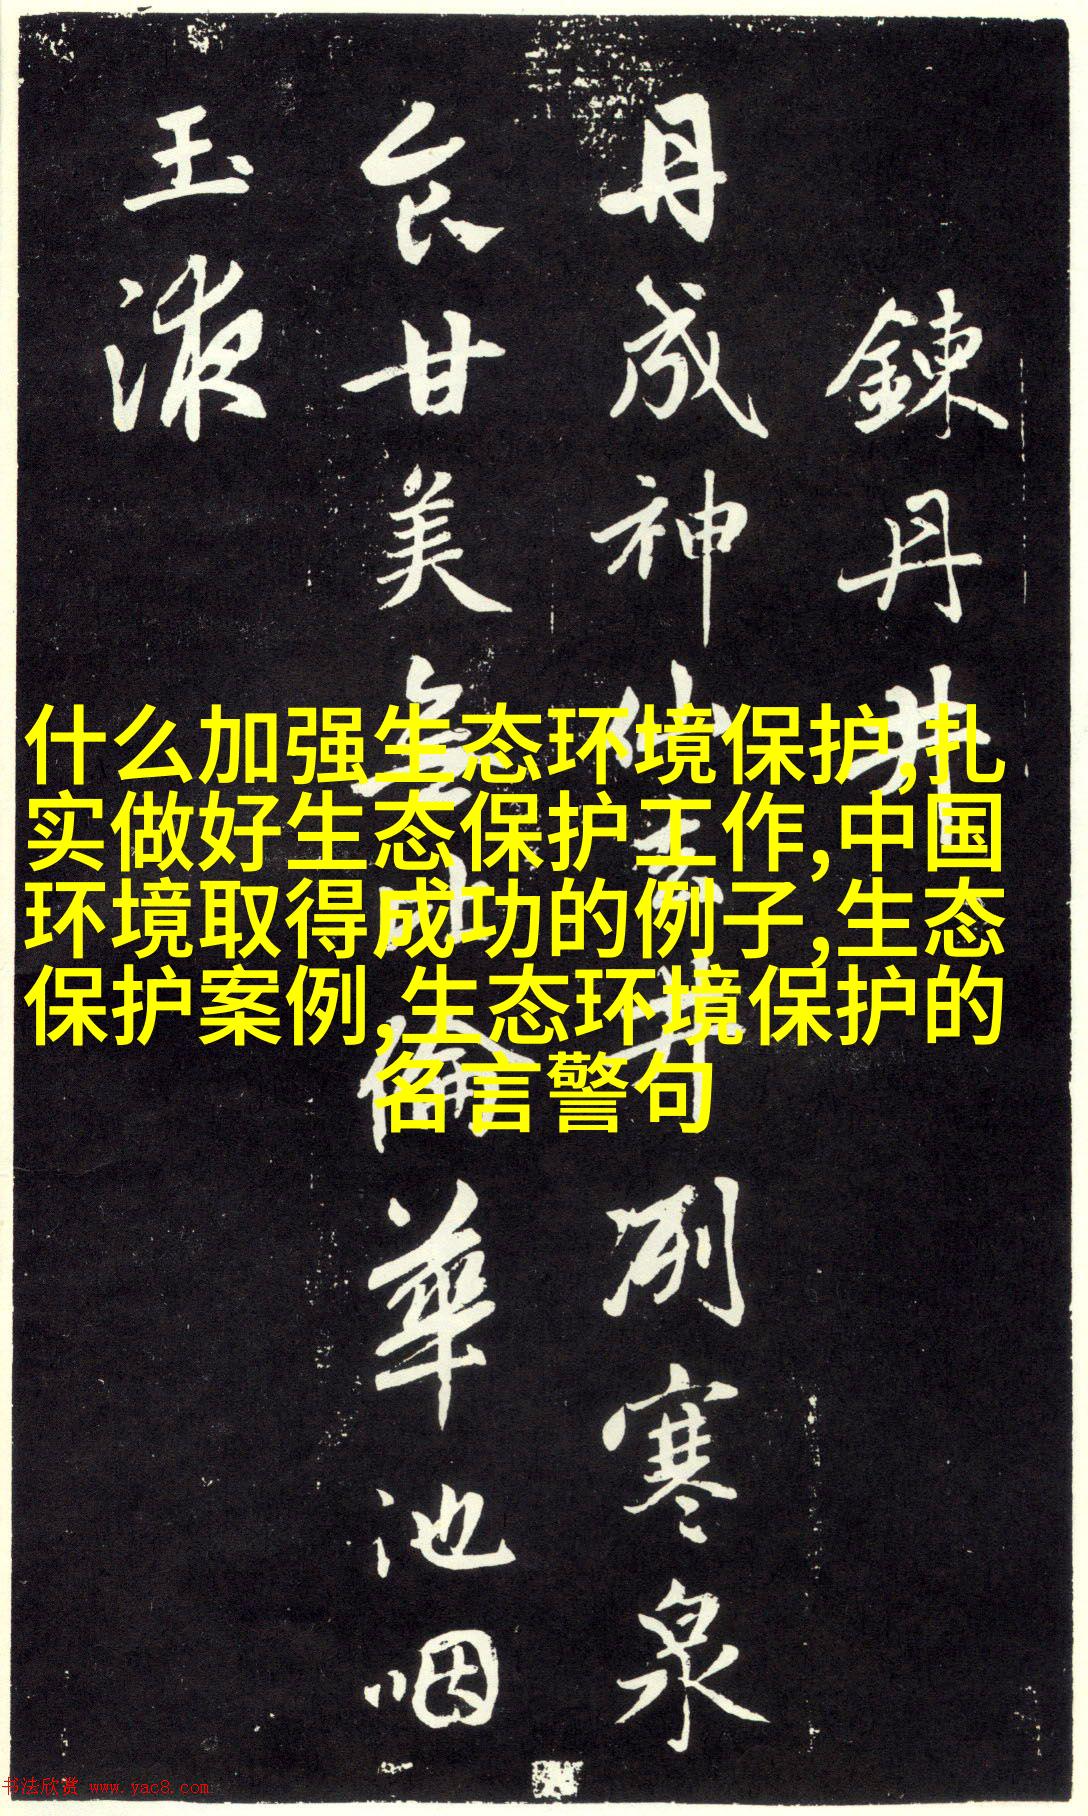 鍊丹井
丹成神仙去井冽寒泉
食甘美無比倫華池咽
玉液
什么加强生态环境保护,扎
实做好生态保护工作,中国
环境取得成功的例子,生态
保护案例,生态环境保护的
名言警句
书法欣赏 www.yac8.com